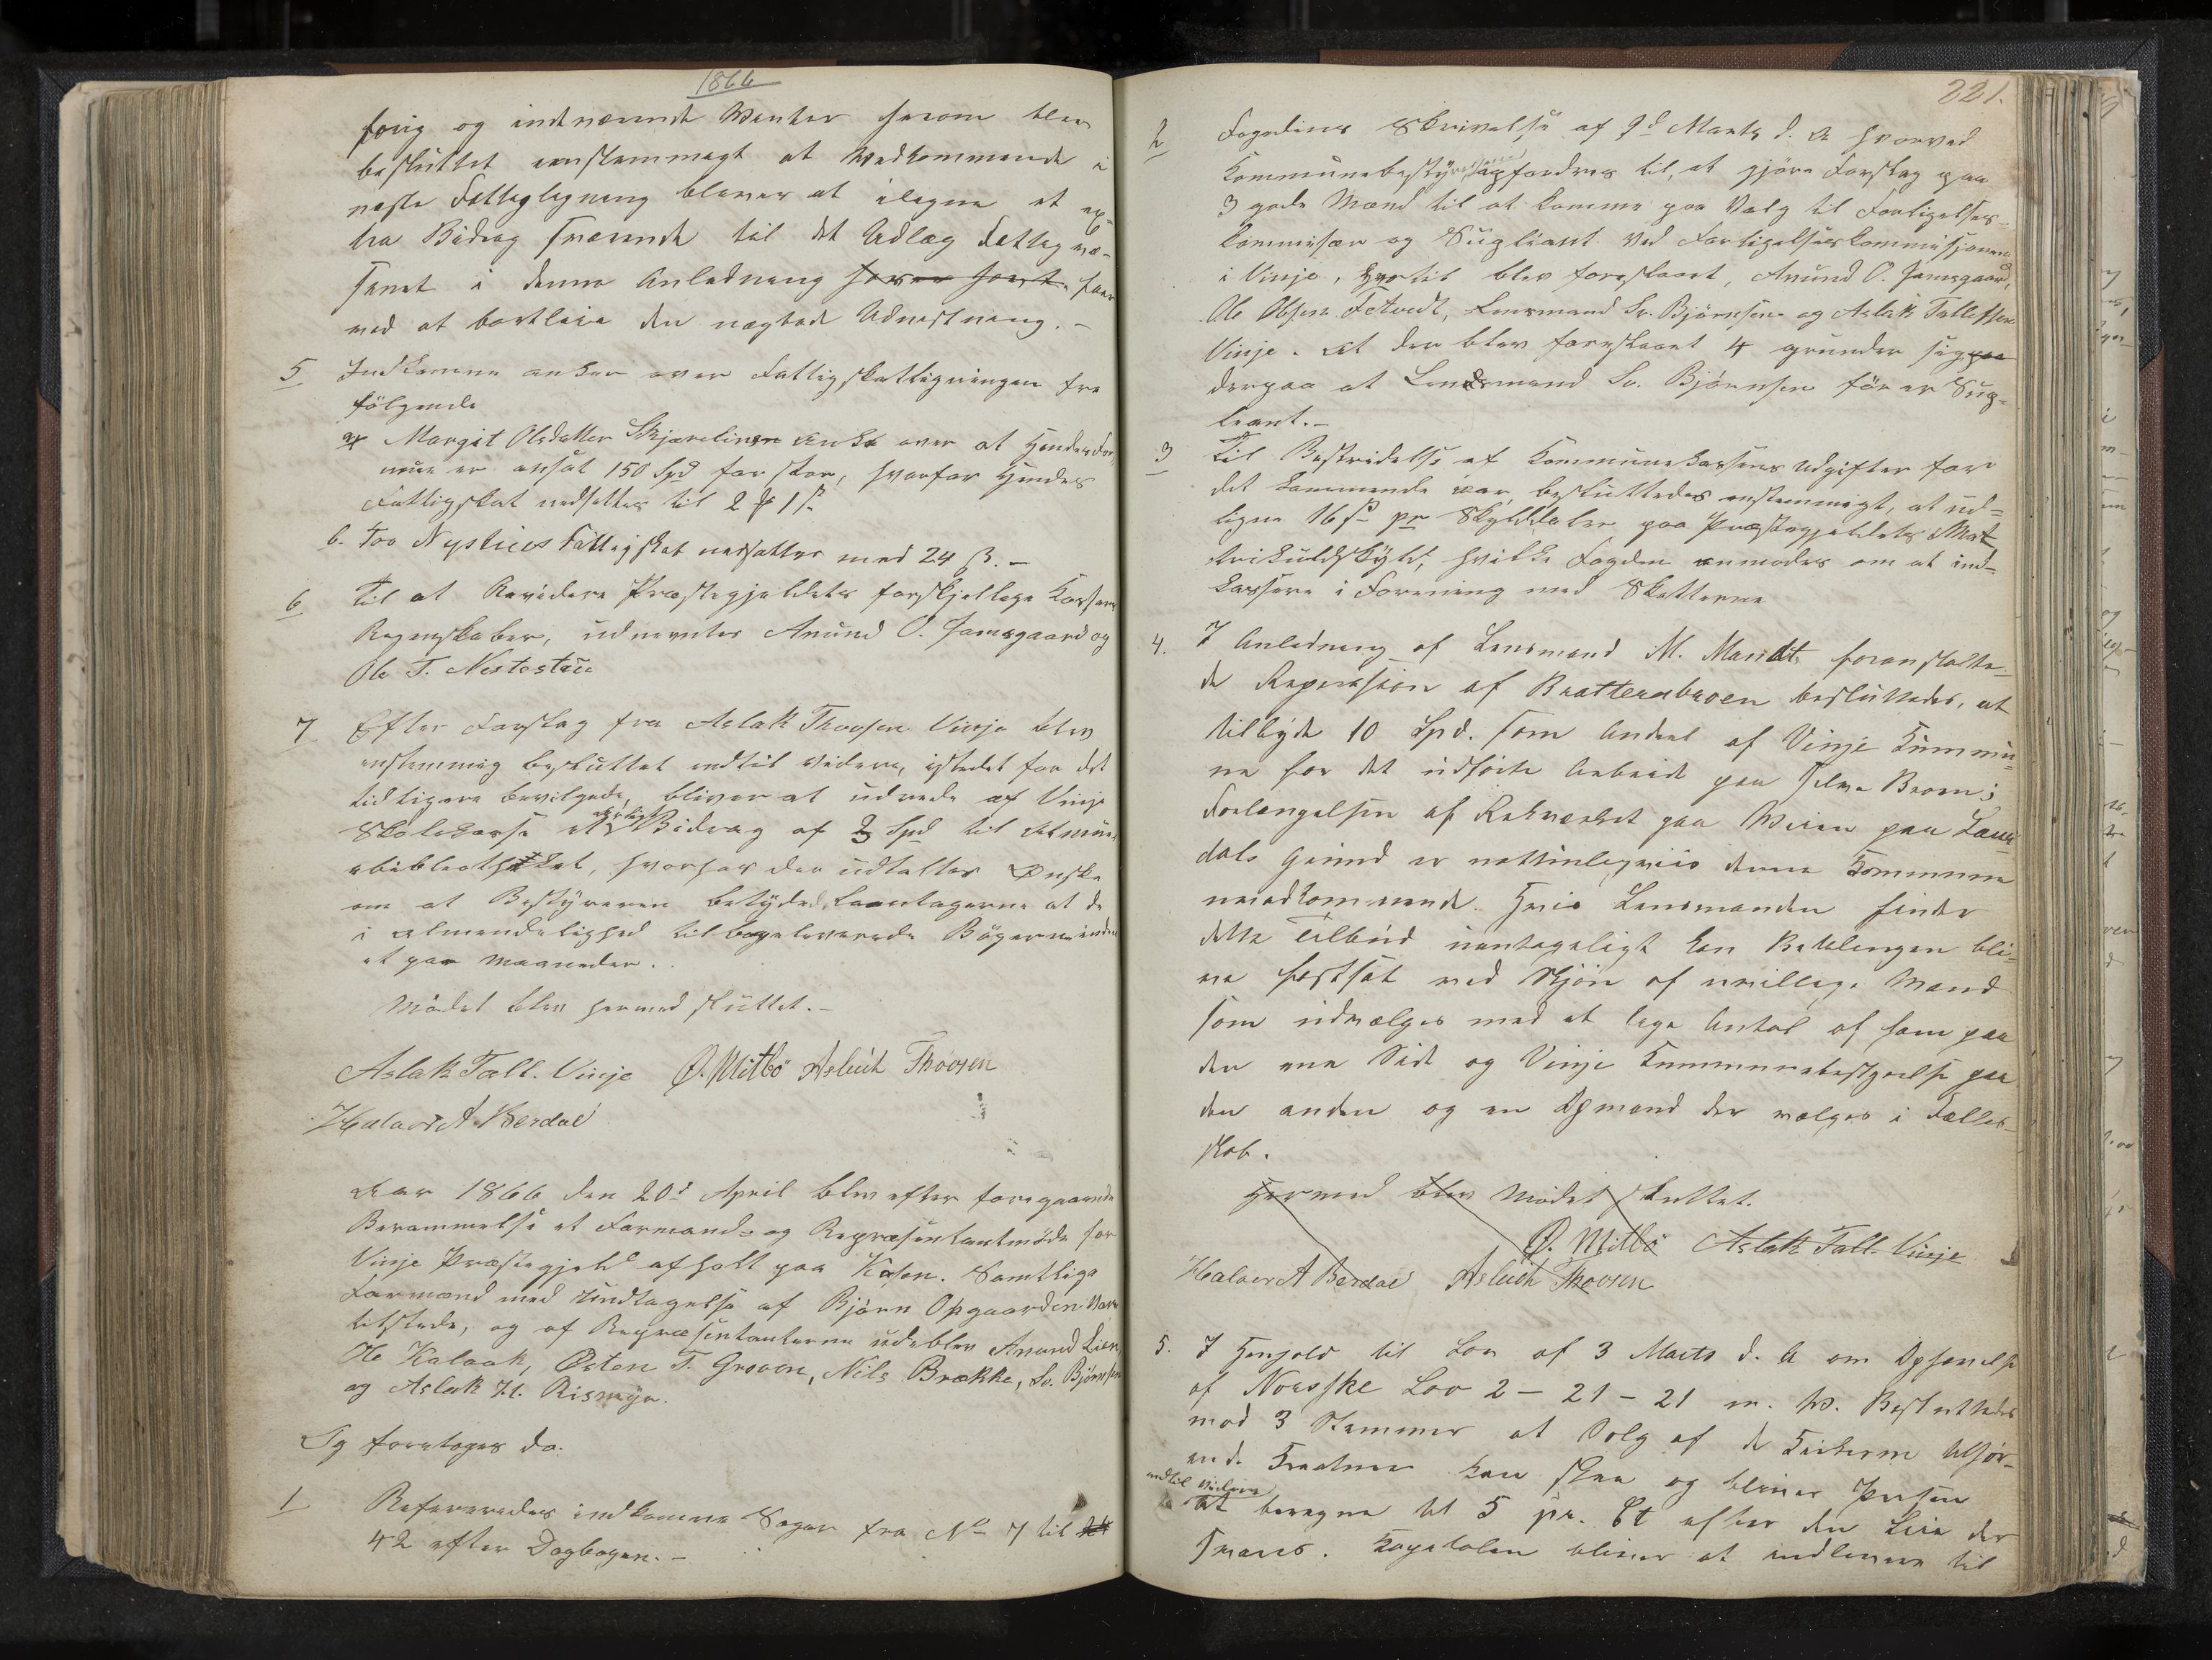 1866
forig og indværende Venter hvorom blev
besluttet eenstemmegt at Vedkommende i
neste Fatteglegning blever at ilegne et ex-
tra Bidrag svarende til det Udlæg Fattegvæ-
senet i denne Anledning haver havt faar
ved at bortleie den nægtede Udnestneng. -
5 Indkomne anker over Fattigskatligningen fra
følgende
a Margit Olsdatter Skjærelien anket over at Hendes For-
mue er ansat 150 Spd for stor, hvorfor Hendes
Fattigskat nedsættes til 2 # 1 ß.
b. Tov Nystuens Fattigskat nedsættes med 24 ß. -
6 Til at Revidere Præstegjeldets forskjellege Kassers
Regnskaber, udnevntes Anund O. Jamsgaard og
Ole T. Nestestue
7 Efter Forslag fra Aslak Thovsen Vinje blev
enstemmig besluttet indtil videre, istedet for det
tidligere bevilgede, bliver at udrede af Vinje
Skolekasse et aarligt Bidrag af 3 Spd til Almue-
ebibliotheket, hvorhos der udtaltes Ønske
om at Bestyreren betyded Laantagerne at de
i almendelighed tilbageleverede Bøgerne inden
et par Maaneder.
Mødet blev hermed sluttet. -
Aslak Tall. Vinje Ø. Mitbö Asluk Thovsen
Halvor A Berdal
Aar 1866 den 20d April blev efter foregaaende
Berammelse et Formands og Repræsentantmøde for
Vinje Præstegjeld afholt paa Kosen. Samtlige
Formænd med Undtagelse af Bjørn Opgaarden vare
tilstede, og af Repræsentanterne udeblev Anund Lien,
Ole Kalaak, Østen T. Groven, Nils Brække, Sv. Bjørnsen
og Aslak H. Rismyr.
Og foretoges da:
1 Refereredes indkomne Sager fra No 7 til
42 efter Dagbogen. -
221.
2 Fogedens Skrivelse af 9d Marts d. A hvorved
Kommunebestyrelsen opfordres til, at gjøre Forslag paa
3 gode Mænd til at komme paa Valg til Forligelses-
kommisær og Supliant ved Forligelseskommisjonen
i Vinje, hertil blev foreslaaet, Anund O. Jamsgaard,
Ole Olsen Fetvedt, Lensmand Sv. Bjørnsen og Aslak Tallefsen
Vinje. At der blev foreslaaet 4 grunder sig paa
derpaa at Lensmand Sv. Bjørnsen før er Sup-
leant. -
3 Til Bestridelse af Kommunekassens Udgifter for
det kommende aar, besluttedes enstemmigt, at ud-
ligne 16 ß pr Skylddaler paa Præstegjeldets Mat
trikulskyld, hvilke Fogden anmodes om at ind-
kassere i Forening med Skatterne
4. I Anledning af Lensmand M. Mandts foranstalte-
de Reperasion af Bratternbroen besluttedes, at
tilbyde 10 Spd. som Andeel af Vinje Kommu-
ne for det udførte Arbeid paa selve Broen;
Forlængelsen af Rekværket paa Veien paa Laur-
dals Grund er natturlegviis denne Kommune
uvedkommende. Hvis Lensmanden finder
dette Tilbud uantageligt kan Betalingen bli-
ve fastsat ved Skjøn af uvillege Mænd
som udvælges med et lige Antal af ham paa
den ene Side og Vinje Kommunebestyrelse paa
den anden og en Opmand der vælges i Fælles-
skab.
Hermed blev Mødet sluttet.
Ø. Mitbö Aslak Tall. Vinje
Halvor A Berdal Asluk Thovsen
5. I Henhold til Lov af 3 Marts d. A om Ophævelse
af Norsske Lov 2 - 21 - 21 m. V. Besluttedes
mod 3 Stemmer at Salg af de Kirkerne tilhør-
ende kan skee og bliver Prisen
indtil videre
at beregne til 5 pr. Ct efter den Leie der
svares. Kapitalen bliver at indlevere til